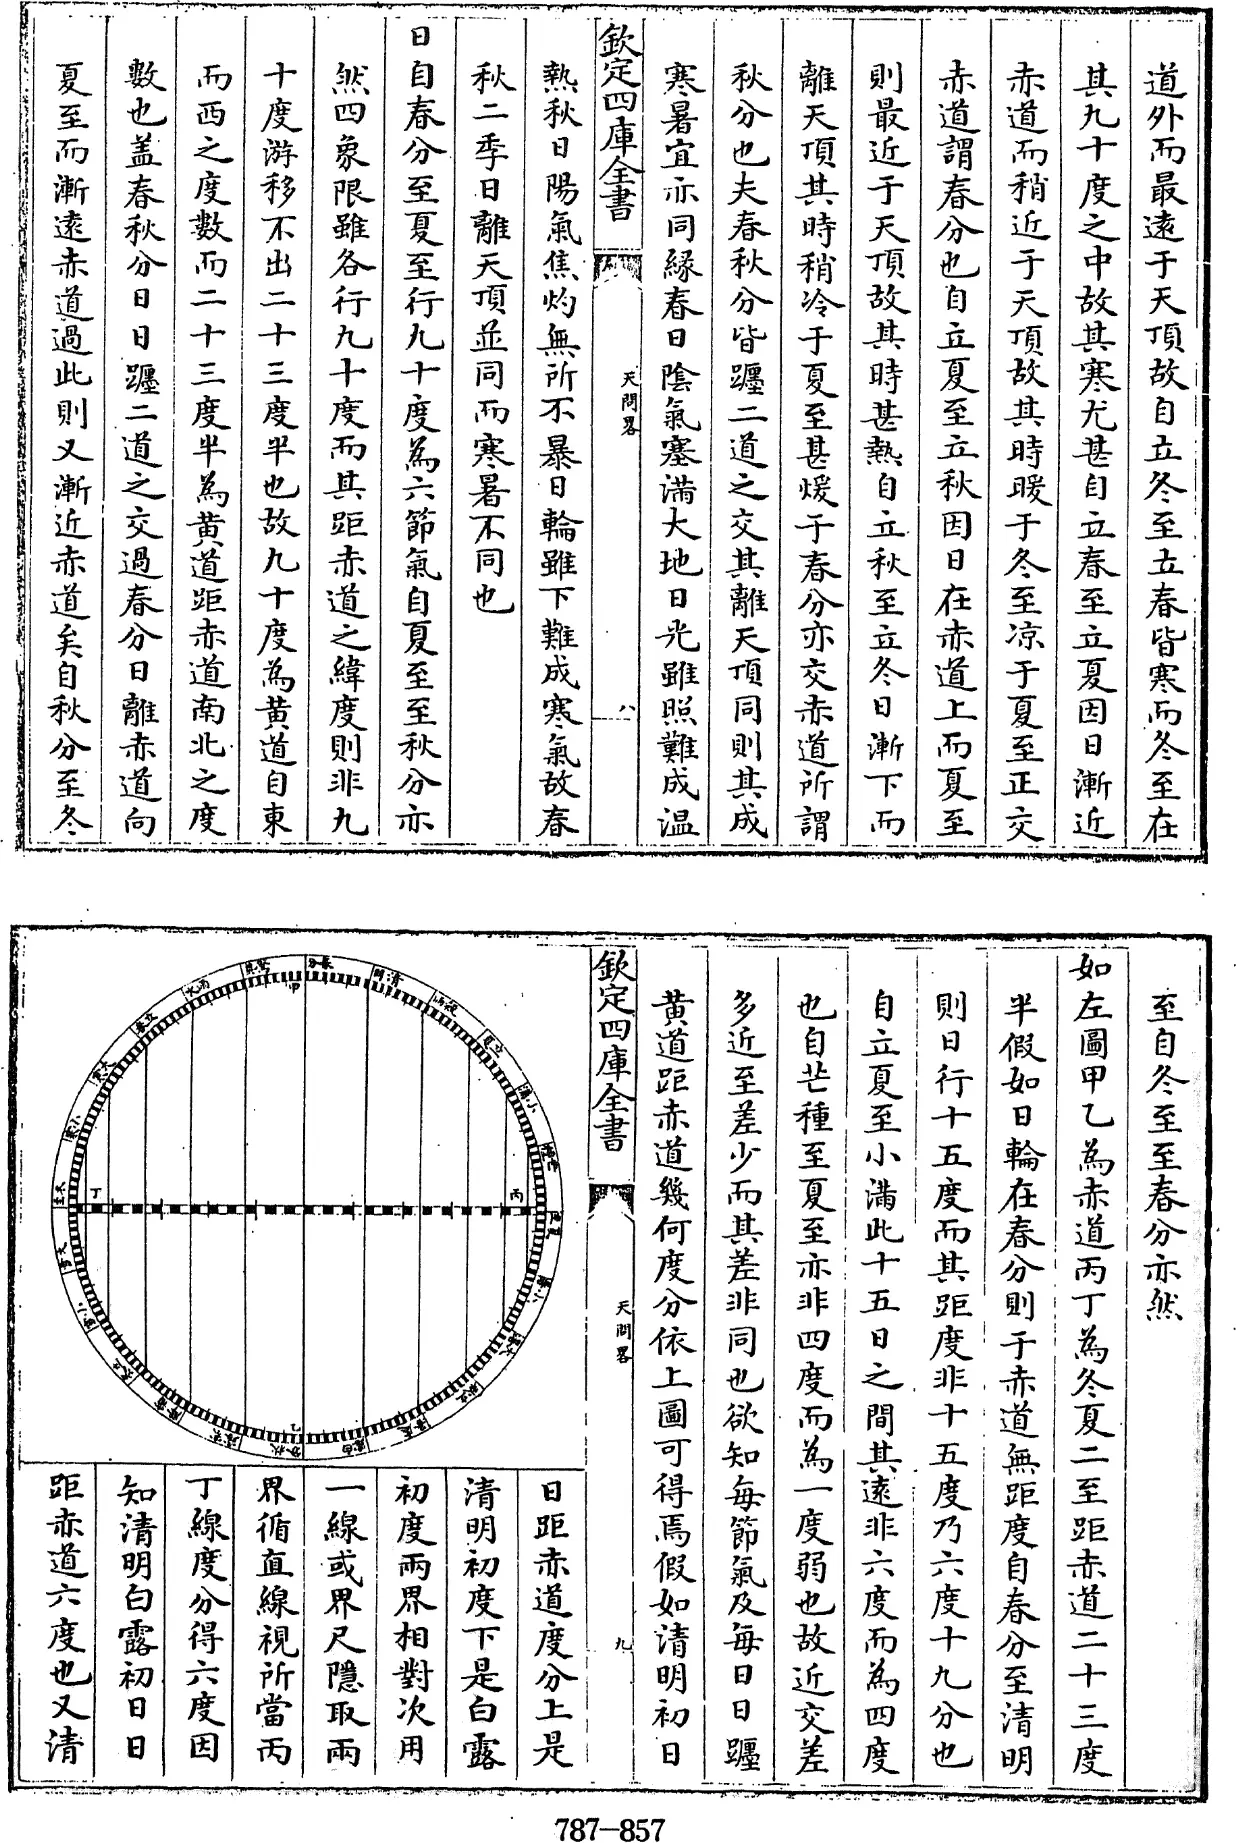 道外而最逺于天頂故自立冬至立春皆寒而冬至在
其九十度之中故其寒尤甚自立春至立夏因日漸近
赤道而稍近于天頂故其時暖于冬至凉于夏至正交
赤道謂春分也自立夏至立秋因日在赤道上而夏至
則最近于天頂故其時甚熱自立秋至立冬日漸下而
離天頂其時稍冷于夏至甚煖于春分亦交赤道所謂
秋分也夫春秋分皆躔二道之交其離天頂同則其成
寒暑宜亦同縁春日陰氣塞滿大地日光雖照難成温
欽定四庫全書
天問畧
八
熱秋日陽氣焦灼無所不暴日輪雖下難成寒氣故春
秋二季日離天頂並同而寒暑不同也
日自春分至夏至行九十度為六節氣自夏至至秋分亦
然四象限雖各行九十度而其距赤道之緯度則非九
十度游移不出二十三度半也故九十度為黄道自東
而西之度數而二十三度半為黄道距赤道南北之度
數也盖春秋分日日躔二道之交過春分日離赤道向
夏至而漸逺赤道過此則又漸近赤道矣自秋分至冬
至自冬至至春分亦然
如左圖甲乙為赤道丙丁為冬夏二至距赤道二十三度
半假如日輪在春分則于赤道無距度自春分至清明
則日行十五度而其距度非十五度乃六度十九分也
自立夏至小滿此十五日之間其逺非六度而為四度
也自芒種至夏至亦非四度而為一度弱也故近交差
多近至差少而其差非同也欲知每節氣及每日日躔
黄道距赤道幾何度分依上圖可得焉假如清明初日
欽定四庫全書
天問畧
九
春分
清明
穀雨
立夏
小滿
芒種
夏至
小暑
大暑
立秋
處暑
白露
秋分
寒露
霜降
立冬
小雪
大雪
冬至
小寒
大寒
立春
雨水
驚蟄
甲
乙
丙
丁
日距赤道度分上是
清明初度下是白露
初度兩界相對次用
一線或界尺隱取兩
界循直線視所當丙
丁線度分得六度因
知清明白露初日日
距赤道六度也又清
787-857